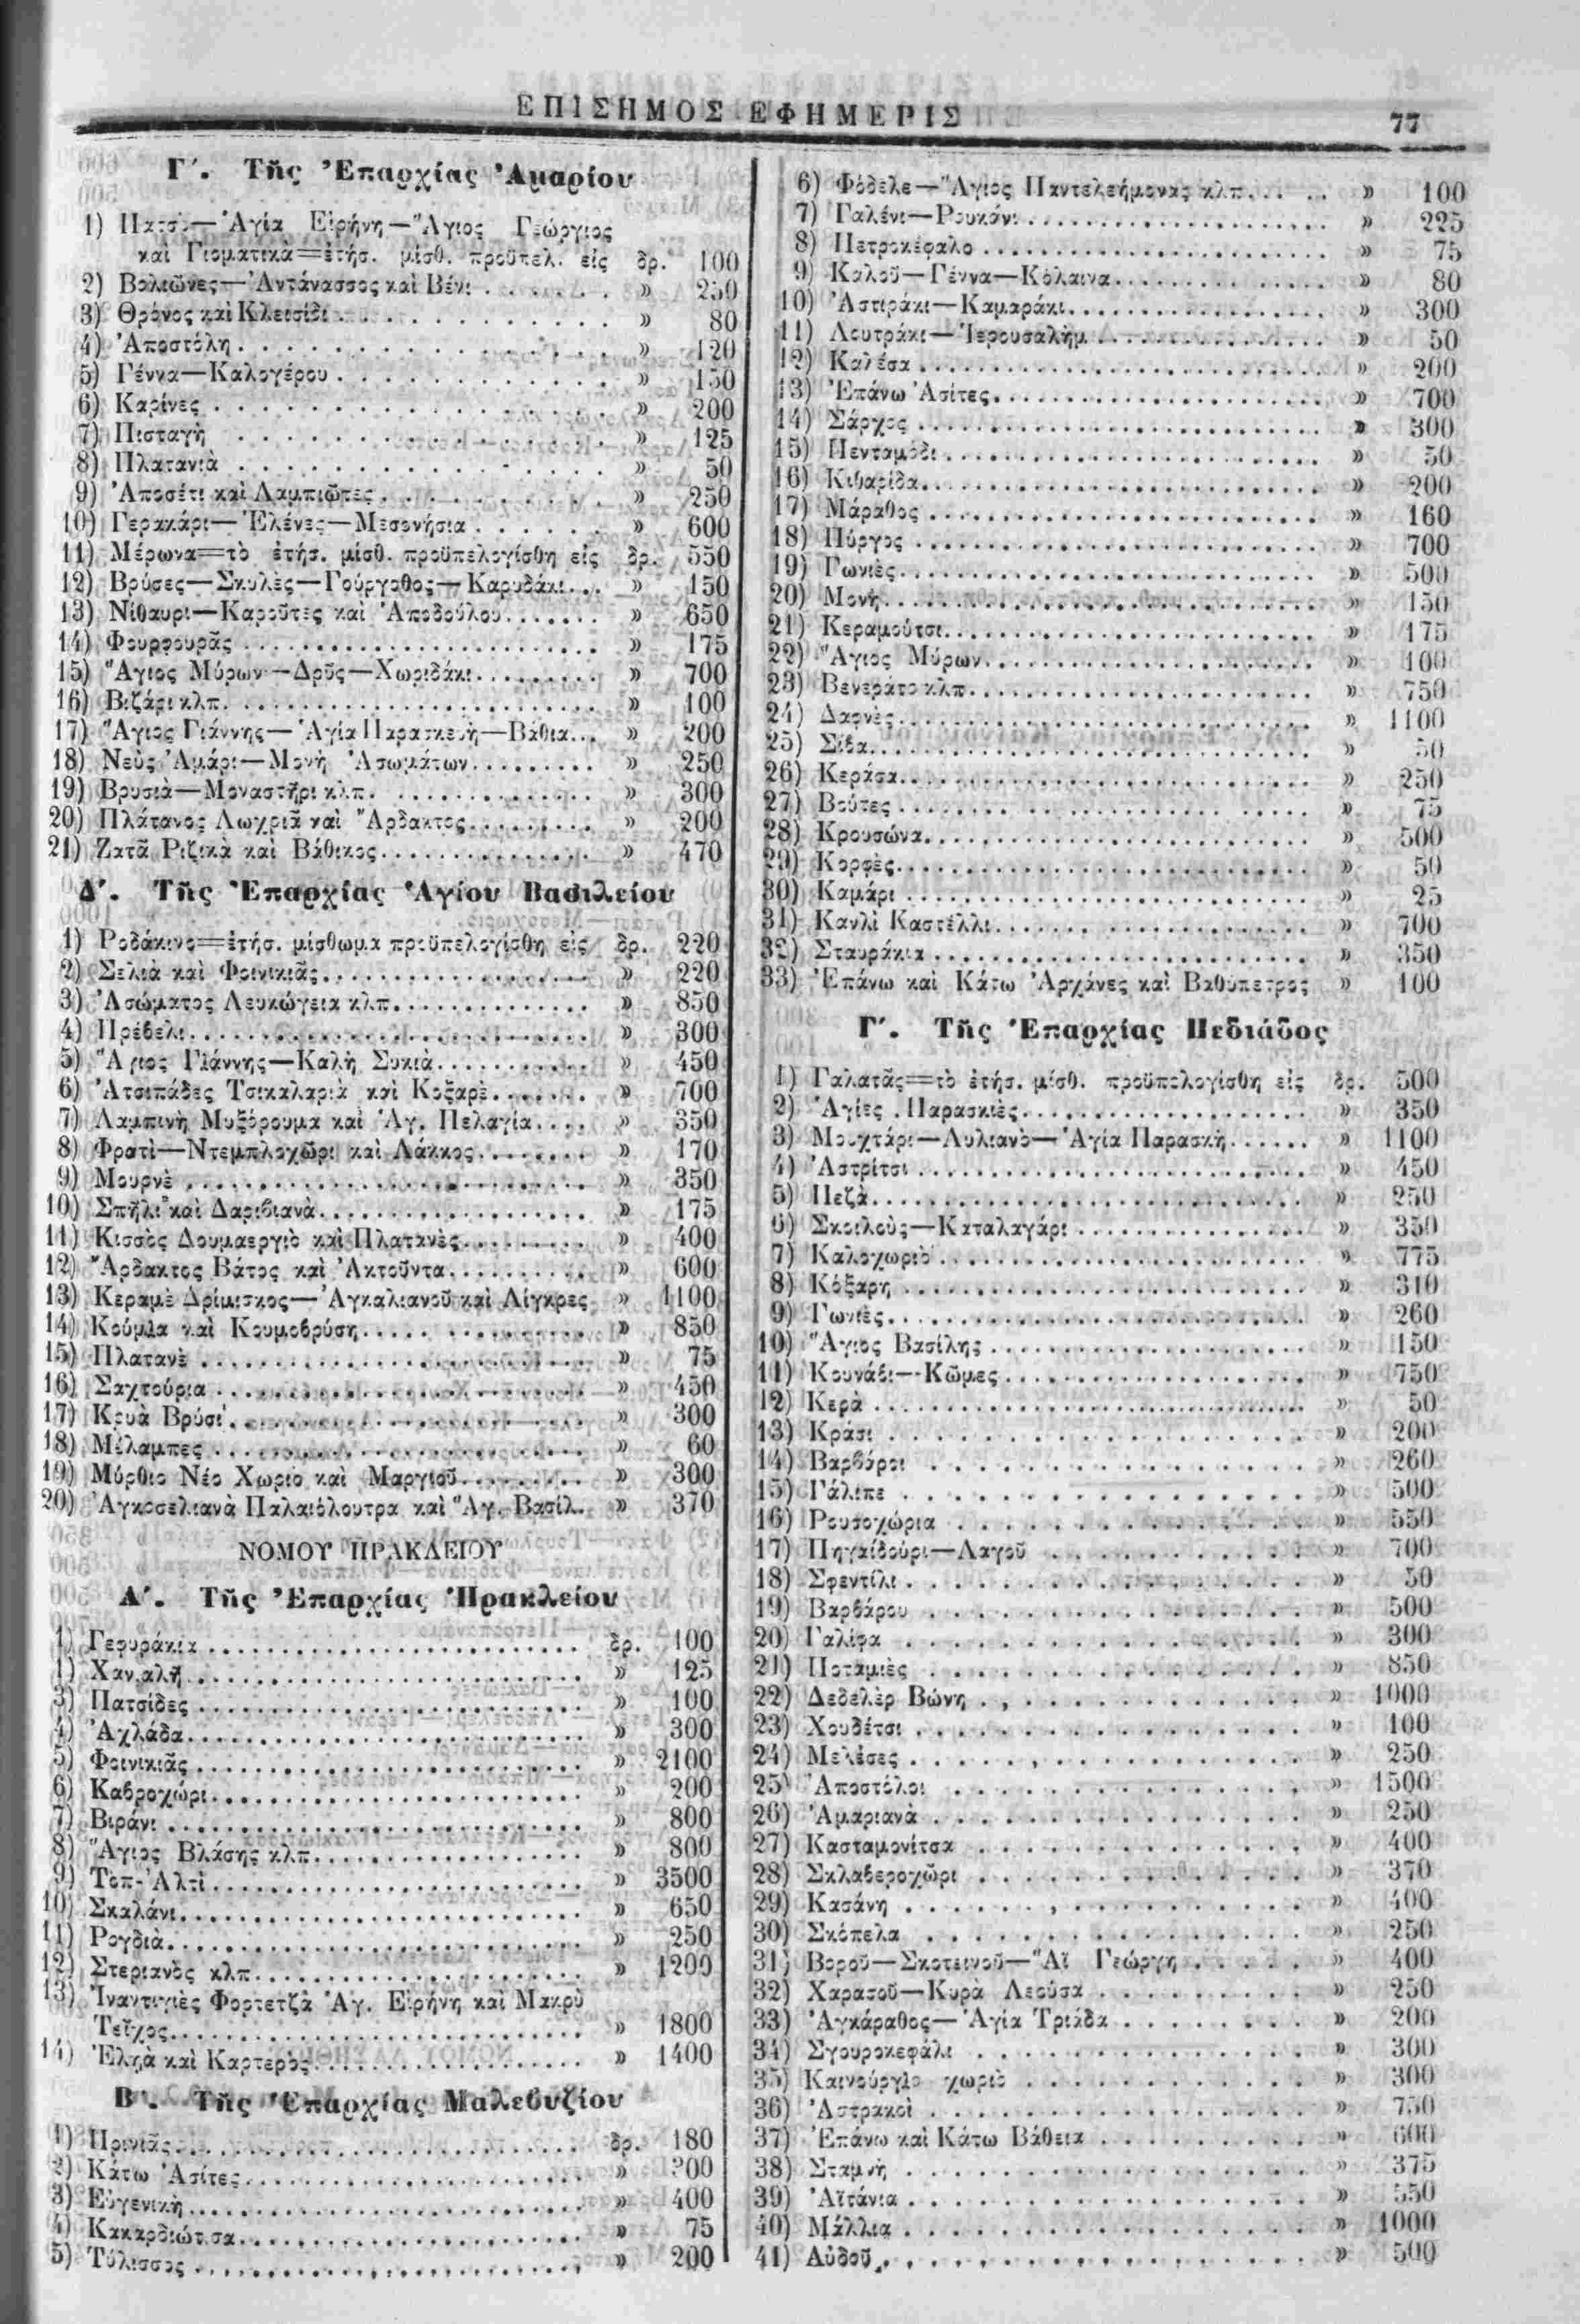 ΕΠΙΣΗΜΟΣ ΕΦΗΜΕΡΙΣ 77
Γ′. Τῆς Ἐπαρχίας Ἀμαρίου
1) Πατσὸ—Ἁγία Εἰρήνη—Ἅγιος Γεώργιος
καὶ Γισματικὰ=ἐτήσ. μίσθ. προϋπελ. εἰς δρ. 100
2) Βολιῶνες—Ἀντάνασσος καὶ Βένι . . . . . . . » 250
3) Θρόνος καὶ Κλεισίδι . . . . . . . . . . . » 80
4) Ἀποστόλη . . . . . . . . . . . . . . » 120
5) Γέννα—Καλογέρου . . . . . . . . . . . » 150
6) Καρίνες . . . . . . . . . . . . . . . » 200
7) Πισταγὴ . . . . . . . . . . . . . . » 125
8) Πλατανιὰ . . . . . . . . . . . . . . » 50
9) Ἀποσέτι καὶ Λαμπιῶτες . . . . . . . . . » 250
10) Γερακάρι—Ἑλένες—Μεσονήσια . . . . . . » 600
11) Μέρωνα=τὸ ἐτήσ. μίσθ. προϋπελογίσθη εἰς δρ. 550
12) Βρύσες—Σκυλὲς—Γούργοθος—Καρυδάκι... » 150
13) Νίθαυρι—Καροῦτες καὶ Ἀποδούλου....... » 650
14) Φουρφουρᾶς ........................ » 175
15) Ἅγιος Μύρων—Δρῦς—Χωριδάκι......... » 700
16) Βιζάρι κλπ. ........................ » 100
17) Ἅγιος Γιάννης—Ἁγία Παρασκευὴ—Βάθια... » 200
18) Νεὺς Ἀμάρι—Μονὴ Ἀσωμάτων......... » 250
19) Βρυσιὰ—Μοναστῆρι κλπ. .............. » 300
20) Πλάτανος Λωχριᾶ καὶ Ἄρδακτος......... » 200
21) Ζατᾶ Ριζικὰ καὶ Βάθικος.............. » 470
Δ′. Τῆς Ἐπαρχίας Ἁγίου Βασιλείου
1) Ροδάκινο=ἐτήσ. μίσθωμα προϋπελογίσθη εἰς δρ. 220
2) Σελιὰ καὶ Φοινικιᾶς.................. » 220
3) Ἀσώματος Λευκώγεια κλπ.............. » 850
4) Πρέβελι........................... » 300
5) Ἅγιος Γιάννης—Καλὴ Συκιὰ........... » 450
6) Ἀτσιπάδες Τσικαλαριὰ καὶ Κοξαρὲ....... » 700
7) Λαμπινὴ Μυξόρουμα καὶ Ἁγ. Πελαγία.... » 350
8) Φρατὶ—Ντεμπλοχῶρι καὶ Λάκκος........ » 170
9) Μουρνὲ ........................... » 350
10) Σπήλι καὶ Δαριβιανὰ................. » 175
11) Κισσὸς Δουμαεργιὸ καὶ Πλατανὲς......... » 400
12) Ἄρδακτος Βάτος καὶ Ἀκτοῦντα.......... » 600
13) Κεραμὲ Δρίμισκος—Ἀγκαλιανοῦ καὶ Λίγκρες » 1100
14) Κούμια καὶ Κουμοβρύση............... » 850
15) Πλατανὲ .......................... » 75
16) Σαχτούρια ......................... » 450
17) Κρυὰ Βρύσι......................... » 300
18) Μέλαμπες ......................... » 60
19) Μύρθιο Νέο Χωριὸ καὶ Μαργιοῦ......... » 300
20) Ἀγκοσελιανὰ Παλαιόλουτρα καὶ Ἅγ. Βασίλ. » 370
ΝΟΜΟΥ ΗΡΑΚΛΕΙΟΥ
Α′. Τῆς Ἐπαρχίας Ἡρακλείου
1) Γεφυράκια ......................... δρ. 100
1) Χαν.αλῆ........................... » 125
3) Πατσίδες .......................... » 100
4) Ἀχλάδα........................... » 300
5) Φοινικιᾶς.......................... » 2100
6) Καβροχώρι......................... » 200
7) Βιράνι ............................ » 800
8) Ἅγιος Βλάσης κλπ................... » 800
9) Τὸπ-Ἀλτὶ......................... » 3500
10) Σκαλάνι........................... » 650
11) Ρογδιὰ............................ » 250
12) Στεριανὸς κλπ...................... » 1200
13) Ἰναντιγιὲς Φορτετζὰ Ἁγ. Εἰρήνη καὶ Μακρὺ
Τεῖχος............................ » 1800
14) Ἐληὰ καὶ Καρτερὸς.................. » 1400
Β′. Τῆς Ἐπαρχίας Μαλεβυζίου
1) Πρινιᾶς........................... δρ. 180
2) Κάτω Ἀσίτες....................... » 300
3) Εὐγενικὴ.......................... » 400
4) Κακαρδιώτισα....................... » 75
5) Τύλισσος .......................... » 200
6) Φόδελε—Ἅγιος Παντελεήμονας κλπ... .. » 100
7) Γαλένι—Ρουκάνι..................... » 225
8) Πετροκέφαλο ....................... » 75
9) Καλοῦ—Γέννα—Κόλαινα............... » 80
10) Ἀστιράκι—Καμαράκι.................. » 300
11) Λουτράκι—Ἱερουσαλὴμ ................ » 50
12) Καλέσα ........................... » 200
13) Ἐπάνω Ἀσίτες...................... » 700
14) Σάρχος ........................... » 300
15) Πενταμόδι ......................... » 50
16) Κιθαρίδα.......................... » 200
17) Μάραθος .......................... » 160
18) Πύργος ........................... » 700
19) Γωνιὲς............................ » 500
20) Μονὴ............................. » 150
21) Κεραμούτσι........................ » 175
22) Ἅγιος Μύρων....................... » 100
23) Βενεράτο κλπ....................... » 750
24) Δαφνὲς............................ » 1100
25) Σίβα............................. » 50
26) Κεράσα........................... » 250
27) Βούτες ........................... » 75
28) Κρουσώνα.......................... » 500
29) Κορφὲς............................ » 50
30) Καμάρι ........................... » 25
31) Κανλὶ Καστέλλι..................... » 700
32) Σταυράκια ......................... » 350
33) Ἐπάνω καὶ Κάτω Ἀρχάνες καὶ Βαθύπετρος » 100
Γ′. Τῆς Ἐπαρχίας Πεδιάδος
1) Γαλατᾶς=τὸ ἐτήσ. μίσθ. προϋπολογίσθη εἰς δρ. 500
2) Ἁγίες Παρασκιὲς.................... » 350
3) Μουχτάρι—Λυλιανὸ—Ἁγία Παρασκὴ...... » 1100
4) Ἀστρίτσι .......................... » 450
5) Πεζὰ............................. » 250
6) Σκοιλοὺς—Καταλαγάρι ................ » 350
7) Καλοχωριὸ ........................ » 775
8) Κόξαρη ........................... » 310
9) Γωνιὲς............................ » 260
10) Ἅγιος Βασίλης ..................... » 150
11) Κουνάβι—Κῶμες ..................... » 750
12) Κερὰ ............................. » 50
13) Κράσι ............................ » 200
14) Βαρβάροι . . . . . . . . . . . . . . » 260
15) Γάλιπε . . . . . . . . . . . . . . . » 500
16) Ρουσοχώρια . . . . . . . . . . . . . » 550
17) Πηγαϊδούρι—Λαγοῦ . . . . . . . . . . » 700
18) Σφεντίλι . . . . . . . . . . . . . . . » 50
19) Βαρβάρου . . . . . . . . . . . . . . » 500
20) Γαλίφα . . . . . . . . . . . . . . . » 300
21) Ποταμιὲς . . . . . . . . . . . . . . » 850
22) Δεδελὲρ Βώνη . . . . . . . . . . . . . » 1000
23) Χουδέτσι . . . . . . . . . . . . . . » 100
24) Μελέσες . . . . . . . . . . . . . . . » 250
25) Ἀποστόλοι . . . . . . . . . . . . . » 1500
26) Ἀμαριανὰ . . . . . . . . . . . . . . » 250
27) Κασταμονίτσα . . . . . . . . . . . . » 400
28) Σκλαβεροχῶρι . . . . . . . . . . . . » 370
29) Κασάνη . . . . . . . . . . . . . . . » 400
30) Σκόπελα . . . . . . . . . . . . . . » 250
31) Βοροῦ—Σκοτεινοῦ—Ἅϊ Γεώργη . . . . . » 400
32) Χαρασοῦ—Κυρὰ Λεοῦσα . . . . . . . . » 250
33) Ἀγκάραθος—Ἁγία Τριάδα . . . . . . . . » 200
34) Σγουροκεφάλι . . . . . . . . . . . . » 300
35) Καινούργιο χωριὸ . . . . . . . . . . » 300
36) Ἀστρακοὶ . . . . . . . . . . . . . . » 750
37) Ἐπάνω καὶ Κάτω Βάθεια . . . . . . . . » 600
38) Σταμνὴ . . . . . . . . . . . . . . . » 375
39) Ἀϊτάνια . . . . . . . . . . . . . . . » 550
40) Μάλλια . . . . . . . . . . . . . . . » 1000
41) Αὐδοῦ . . . . . . . . . . . . . . . . » 500